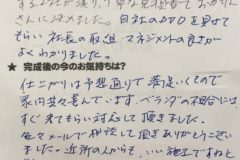 さんに決めました。自社のDVDを見せて
もらい 社長の取組・マネジメントの良さが
よくわかりました。
★ 完成後の今のお気持ちは?
仕上がりは予想通りで 満足いくもので
家内共々喜んでいます。ベランダの不具合には
すぐ来てもらい対応して頂きました。
色々メールで相談して頂きありがとうござい
ました。近所の人からも、いい施工ですねと